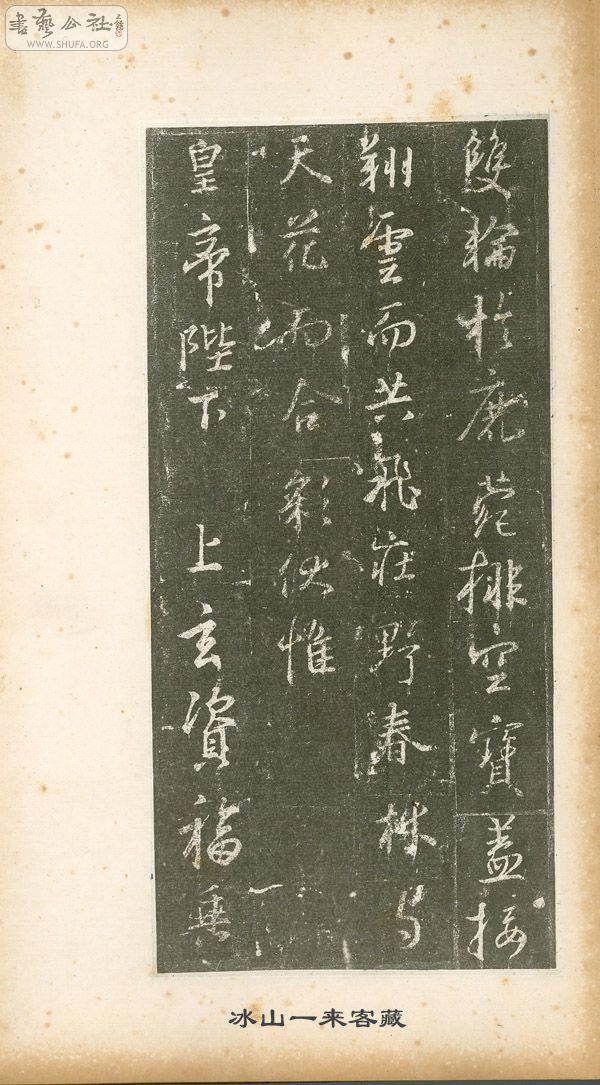 書藝公社
WWW.SHUFA.ORG
雙輪於鹿菀排空寶蓋接
翔雲而共飛莊野春林與
天花而合彩伏惟
皇帝陛下 上玄資福垂
冰山一来客藏